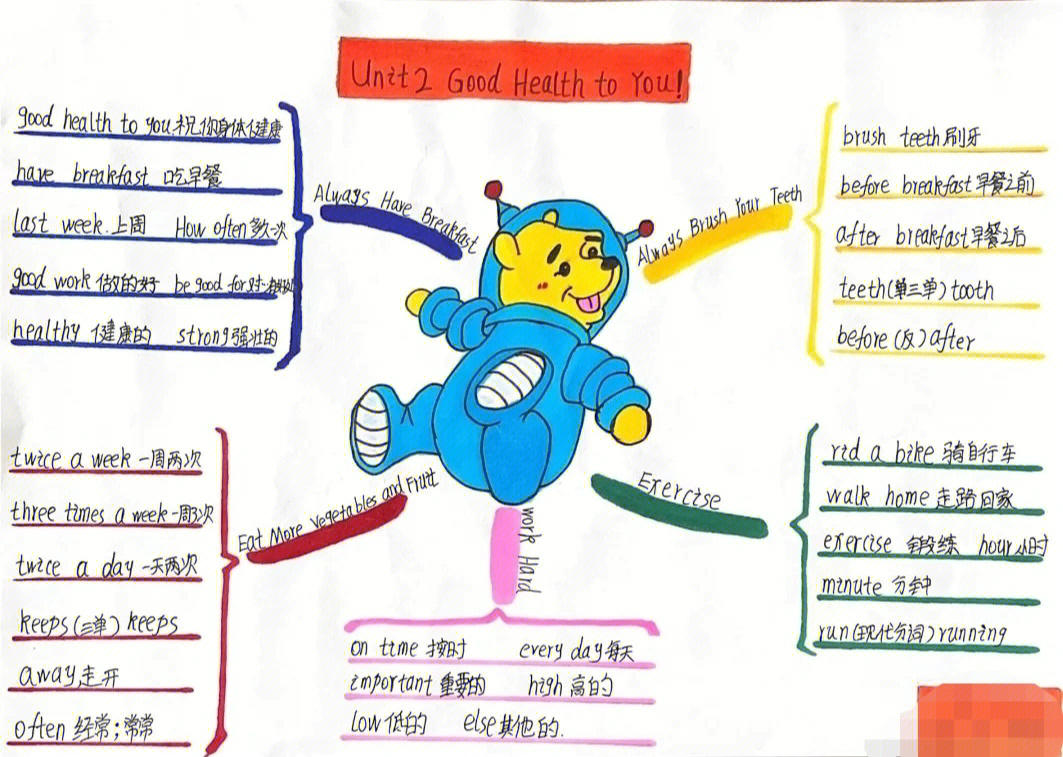 Unit 2 Good Health to You!
Always Have Breakfast
good health to you 祝你身体健康
have breakfast 吃早餐
last week 上周 How often 多久一次
good work 做的好 be good for 对
healthy 健康的 strong 强壮的
Always Brush Your Teeth
brush teeth 刷牙
before breakfast 早餐之前
after breakfast 早餐之后
teeth (单三单) tooth
before (反) after
Eat More Vegetables and Fruit
twice a week 一周两次
three times a week 一周3次
twice a day 一天两次
keeps (三单) keeps
away 走开
often 经常;常常
Work Hard
on time 按时 every day 每天
important 重要的 high 高的
low 低的 else 其他的.
Exercise
rid a bike 骑自行车
walk home 走路回家
exercise 锻练 hour 小时
minute 分钟
run (现代分词) running